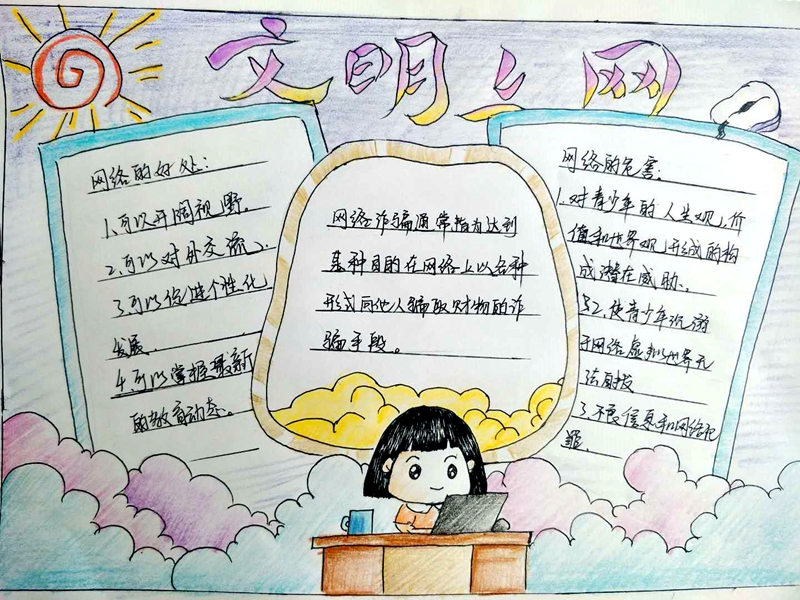 文明上网
网络的好处：
1.可以开阔视野。
2.可以对外交流。
3.可以促进个性化
发展.
4.可以掌握最新
的教育动态。
网络诈骗通常指为达到
某种目的在网络上以各种
形式向他人骗取财物的诈
骗手段。
网络的危害：
1.对青少年的人生观、价
值和世界观形成的构
成潜在威胁。
2.使青少年沉溺
于网络虚拟世界无
法自拔
3.不良信息和网络犯
罪.